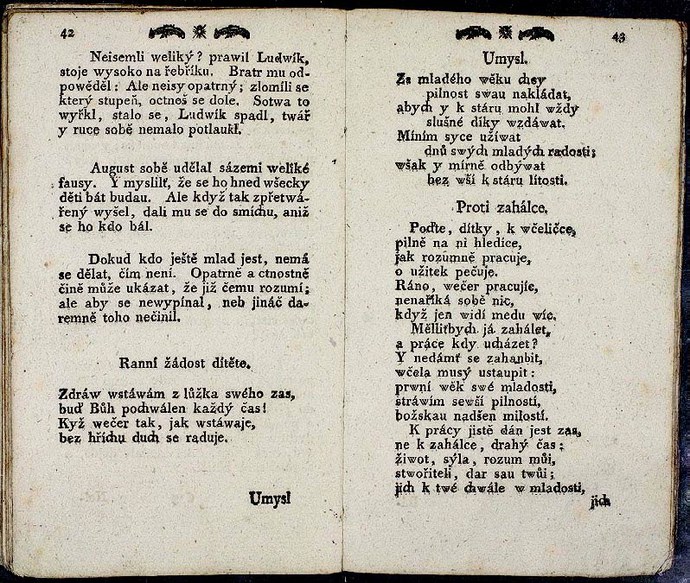 42
Neisemli weliký? prawil Ludwík,
stoje wysoko na řebříku. Bratr mu od-
powěděl: Ale neisy opatrný; zlomíli se
který stupeň, octneš se dole. Sotwa to
wyřkl, stalo se, Ludwík spadl, twář
y ruce sobě nemalo potlaukl.
August sobě udělal sázemi weliké
fausy. Y myslilť, že se ho hned wšecky
děti bát budau. Ale když tak zpřetwá-
řený wyšel, dali mu se do smíchu, aniž
se ho kdo bál.
Dokud kdo ještě mlad jest, nemá
se dělat, čím není. Opatrně a ctnostně
čině může ukázat, že již čemu rozumí;
ale aby se newypínal, neb jináč da-
remně toho nečinil.
Ranní žádost dítěte.
Zdráw wstáwám z lůžka swého zas,
buď Bůh pochwálen každý čas!
Kyž wečer tak, jak wstáwaje,
bez hříchu duch se raduje.
Umysl
43
Umysl.
Za mladého wěku chcy
pilnost swau nakládat,
abych y k stáru mohl wždy
slušné díky wzdáwat.
Míním syce užíwat
dnů swých mladých radosti;
wšak y mírně odbýwat
bez wší k stáru lítosti.
Proti zahálce.
Poďte, dítky, k wčeličce,
pilně na ni hledice,
jak rozumně pracuje,
o užitek pečuje.
Ráno, wečer pracujíc,
nenaříká sobě nic,
když jen widí medu wíc.
Mělliťbych já zahálet,
a práce kdy ucházet?
Y nedámť se zahanbit,
wčela musý ustaupit:
prwní wěk swé mladosti,
stráwím sewší pilností,
božskau nadšen milostí.
K prácy jistě dán jest zas,
ne k zahálce, drahý čas:
život, sýla, rozum můi,
stwořiteli, dar sau twůi;
jich k twé chwále w mladosti,
jich